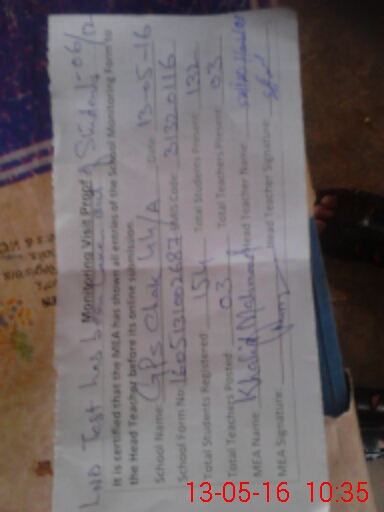 LND Test has been
Students-06/
Monitoring Visit Proof
It is certified that the MEA has shown all entries of the School Monitoring Form to
the Head Teacher before its online submission.
School Name: GPS Chak 44/A Date 13-05-16
School Form No: EMIS Code: 31320116
Total Students Registered: 154 Total Students Present: 132
Total Teachers Posted: 03 Total Teachers Present: 03
MEA Name: Khalid Mahmood Head Teacher Name:
MEA Signature: Head Teacher Signature:
13-05-16 10:35